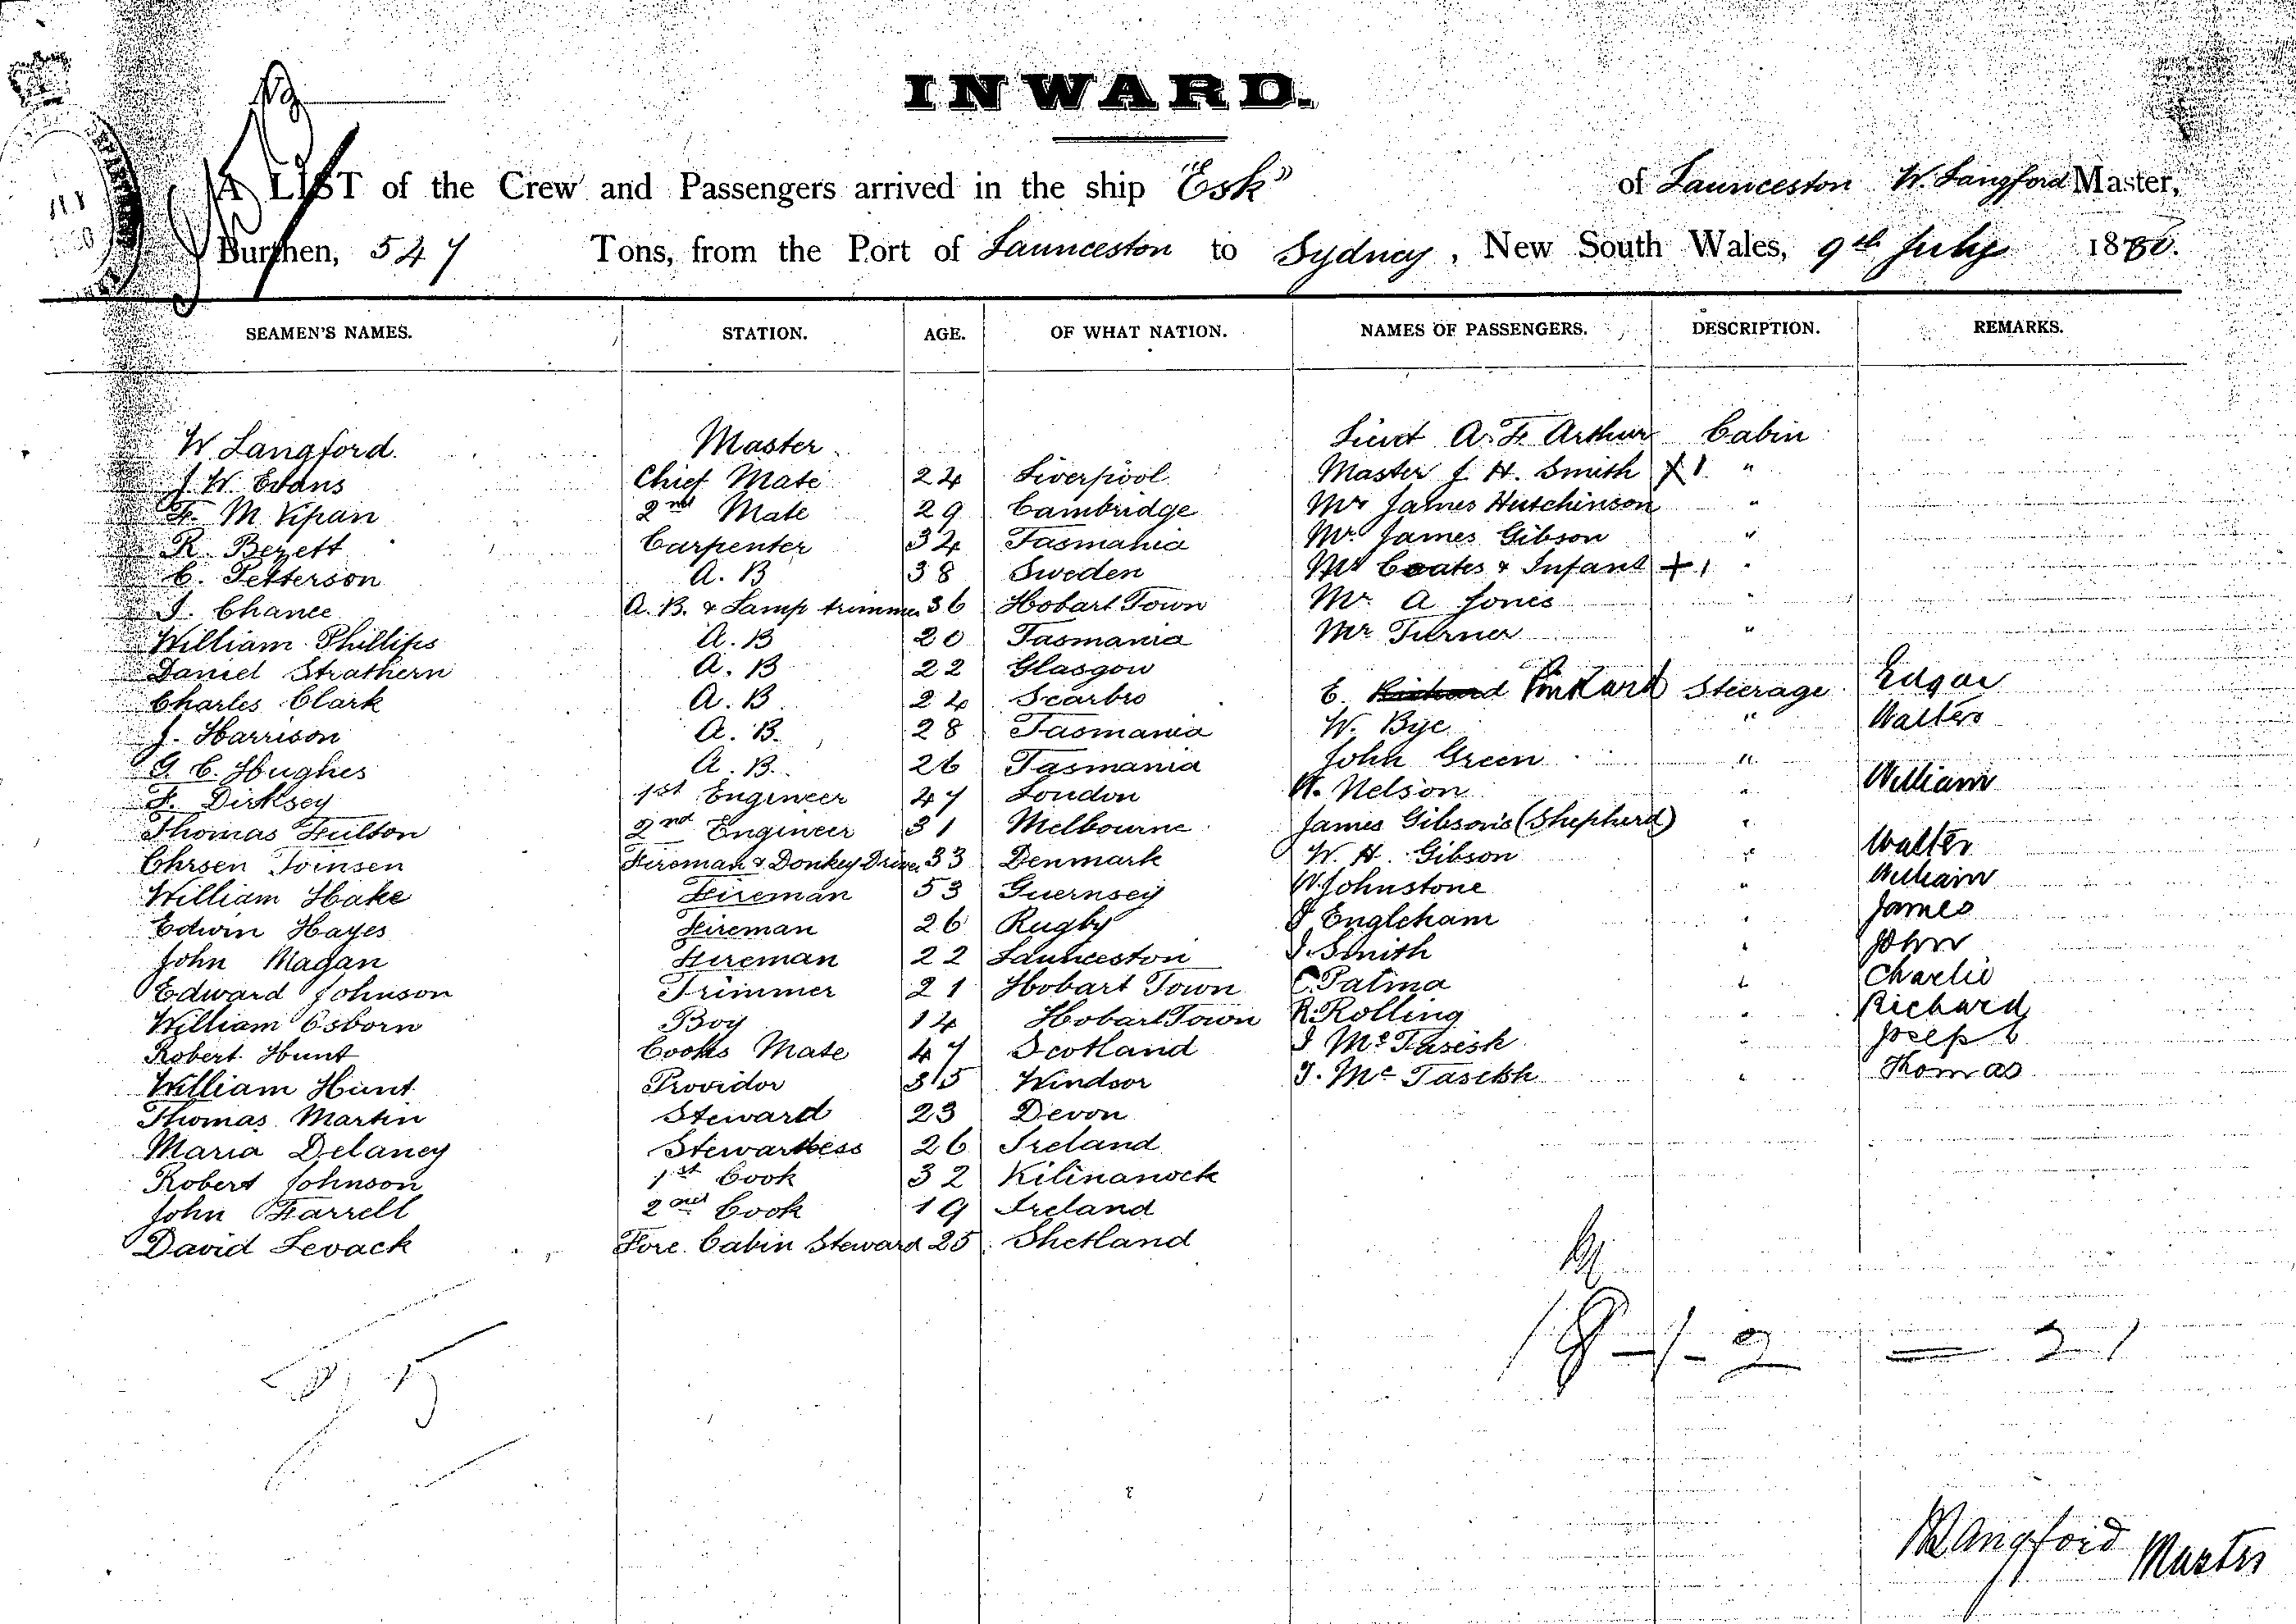 INWARD.
A LIST of the Crew and Passengers arrived in the ship "Esk" of Launceston W. Langford Master,
Burthen, 547 Tons, from the Port of Launceston to Sydney, New South Wales, 9th July 1880.
SEAMEN'S NAMES. STATION. AGE. OF WHAT NATION. NAMES OF PASSENGERS. DESCRIPTION. REMARKS.
W Langford. Master Lieut A. F. Arthur Cabin
J. W. Evans Chief Mate 24 Liverpool Master J. H. Smith 1 "
F. M 2nd Mate 29 Cambridge Mr James Hutchinson "
R. Bezett Carpenter 34 Tasmania Mr James Gibson "
C. Petterson A. B 38 Sweden Coates & Infant + 1 "
J. Chance A. B. & Lamp trimmer 36 Hobart Town Mr A Jones "
William Phillips A. B 20 Tasmania Mr Turner "
Daniel Strathern A. B 22 Glasgow
Charles Clark A. B 24 Scarbro E. Richard Pinkard Steerage Edgar
J. Harrison A. B. 28 Tasmania W. Bye " Walter
G. C. Hughes A. B. 26 Tasmania John Green "
F. Dirksey 1st Engineer 47 London W. Nelson " William
Thomas Fulton 2nd Engineer 31 Melbourne James Gibson's (Shepherd) "
Chrsen Toinsen Fireman & Donkey Driver 33 Denmark W. H. Gibson " Walter
William Hake Fireman 53 Guernsey W Johnstone " William
Edwin Hayes Fireman 26 Rugby J Engleham " James
John Magan Fireman 22 Launceston J. Smith " John
Edward Johnson Trimmer 21 Hobart Town C. Patma " Charlie
William Osborn Boy 14 Hobart Town R. Rolling " Richard
Robert Hunt Cooks Mate 47 Scotland J Mc " Joseph
William Hunt Providor 35 Windsor T. Mc " Thomas
Thomas Martin Steward 23 Devon
Maria Delaney Stewardess 26 Ireland
Robert Johnson 1st Cook 32 Kilinanock
John Farrell 2nd Cook 19 Ireland
David Levack Fore Cabin Steward 25 Shetland
18-1-2 = 21
W Langford Master